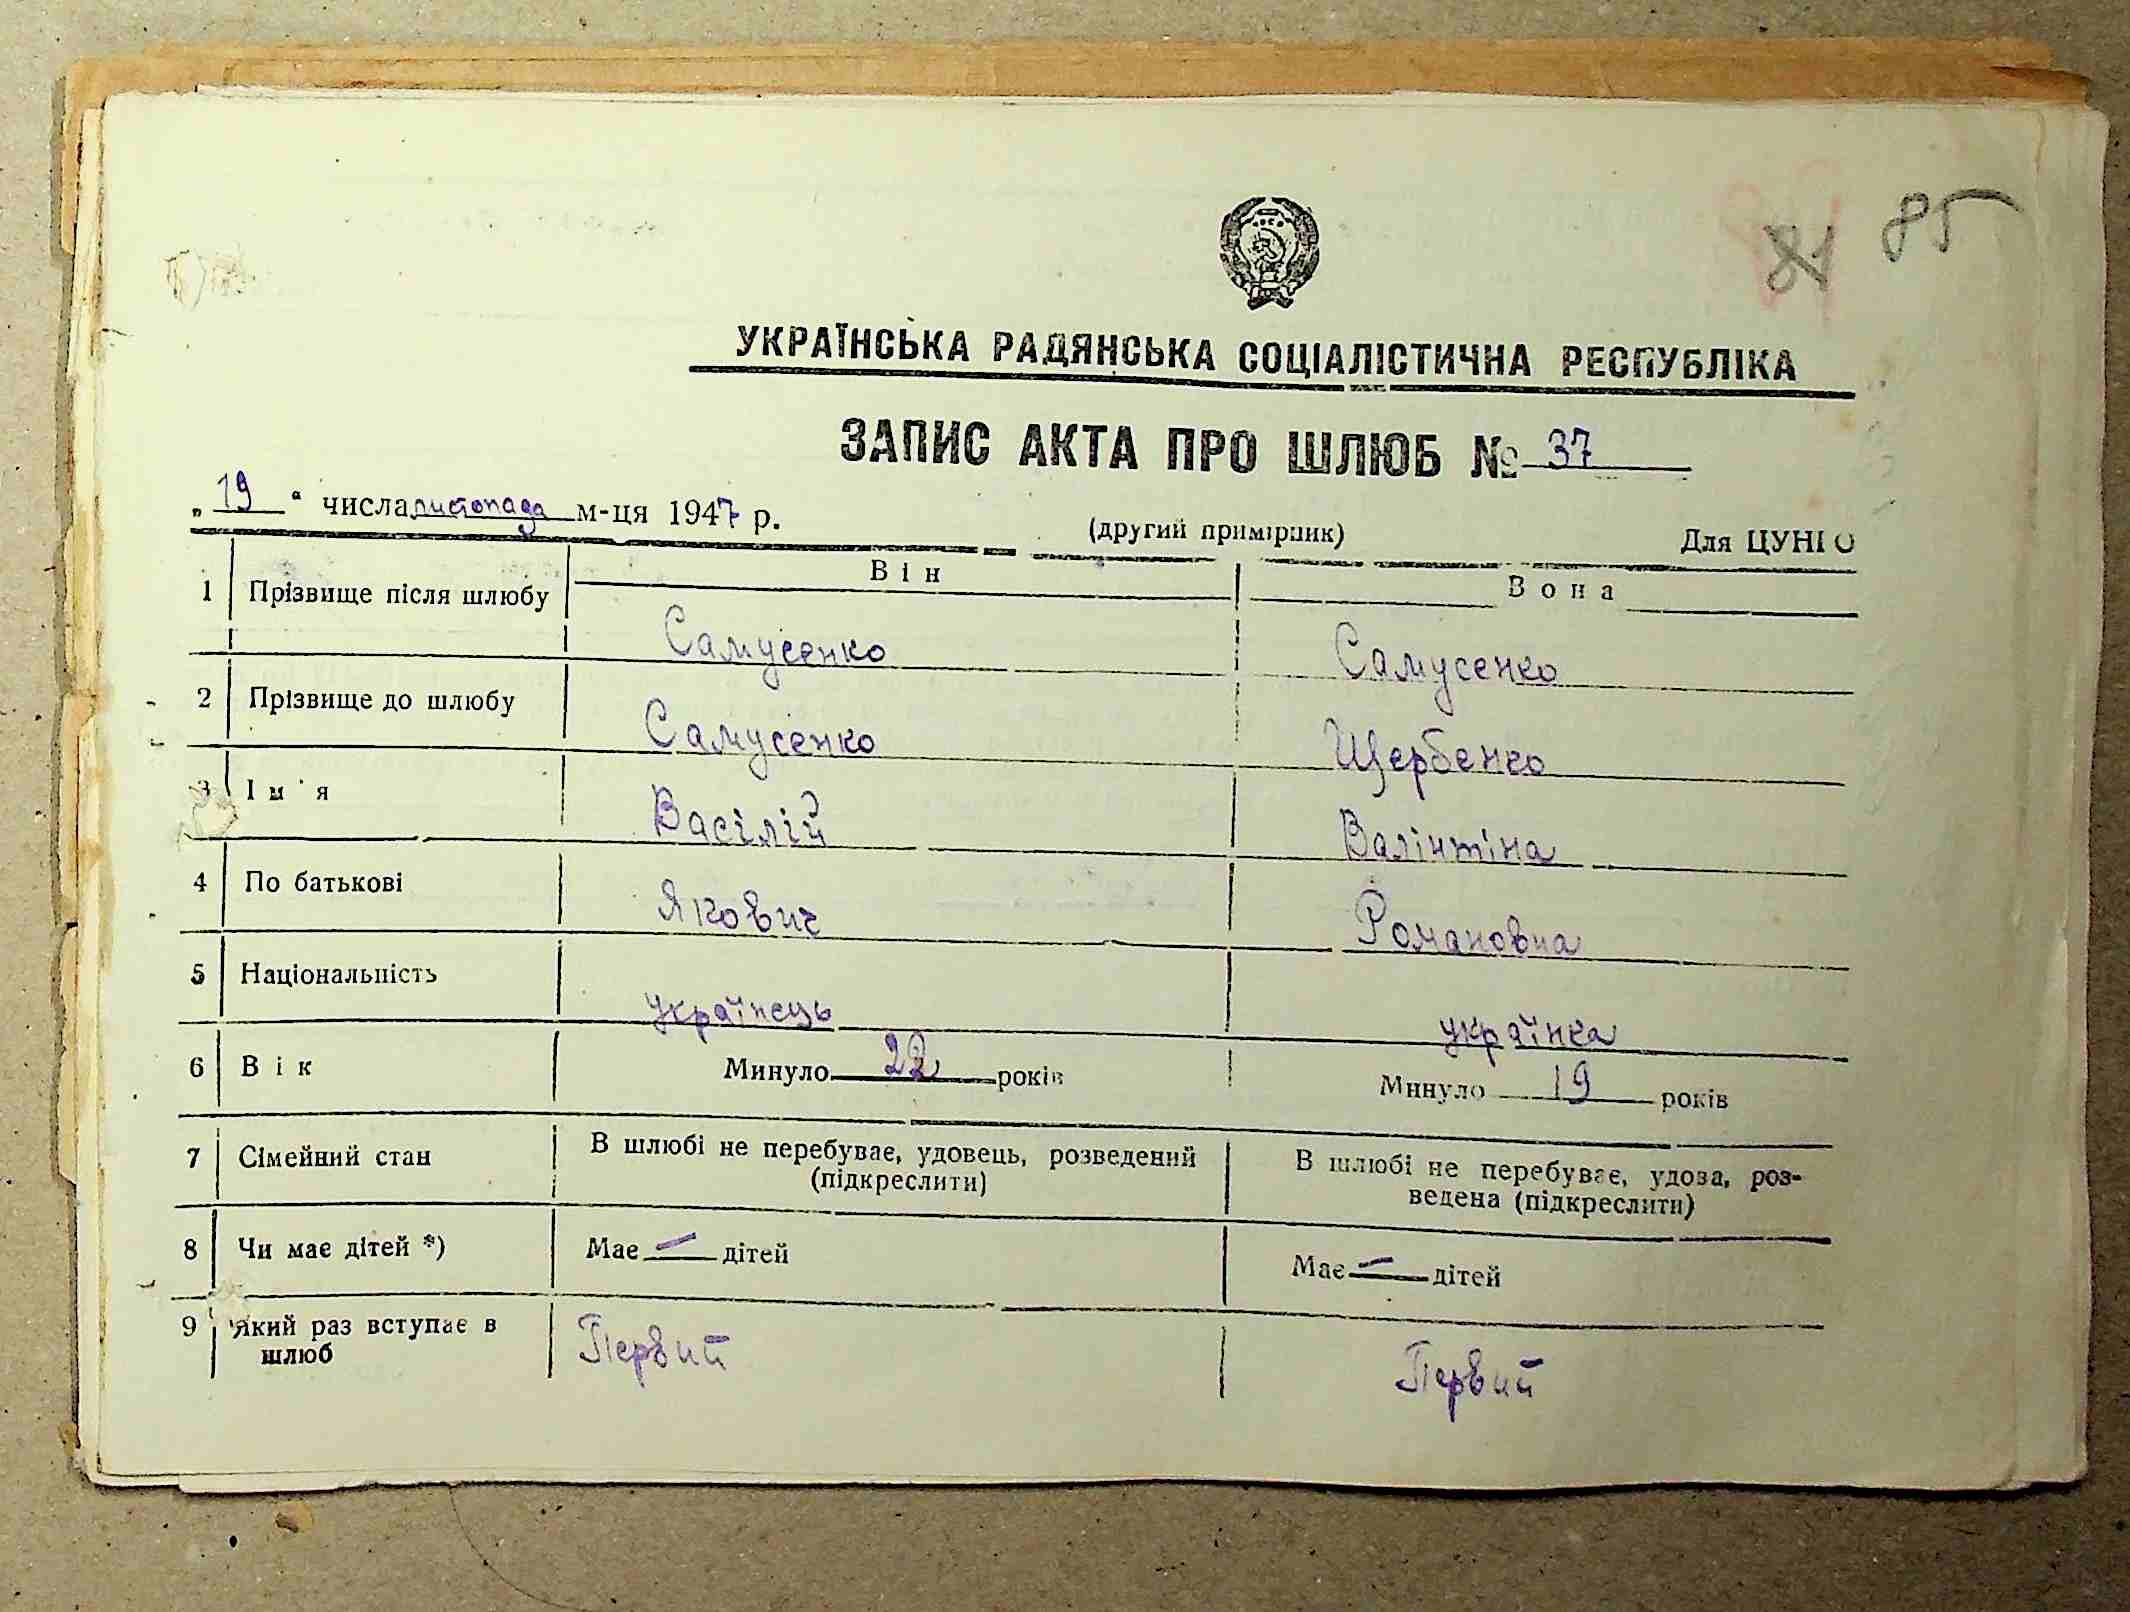 81 85
УКРАЇНСЬКА РАДЯНСЬКА СОЦІАЛІСТИЧНА РЕСПУБЛІКА
ЗАПИС АКТА ПРО ШЛЮБ № 37
„19“ числа листопада м-ця 1947 р. (другий примірник) Для ЦУНГО
1 Прізвище після шлюбу Він Вона
Самусенко Самусенко
2 Прізвище до шлюбу Самусенко Щербенко
3 Ім'я Васілій Валінтіна
4 По батькові Якович Романовна
5 Національність українець українка
6 Вік Минуло 22 років Минуло 19 років
7 Сімейний стан В шлюбі не перебуває, удовець, розведений (підкреслити) В шлюбі не перебуває, удова, роз-
ведена (підкреслити)
8 Чи має дітей *) Має — дітей Має — дітей
9 Який раз вступає в шлюб Первий Первий